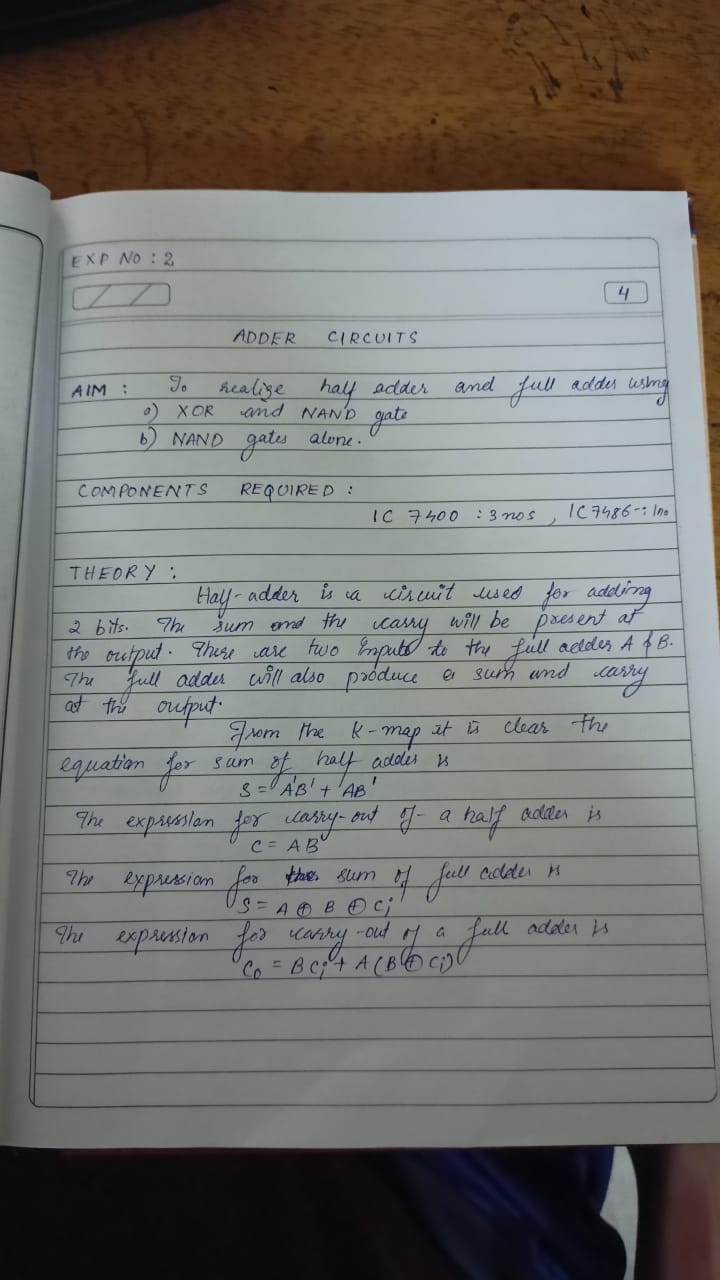 EXP NO : 2
4
ADDER CIRCUITS
AIM : To realize half adder and full adder using
a) XOR and NAND gate
b) NAND gates alone.
COMPONENTS REQUIRED :
IC 7400 : 3 nos , IC 7486 -: 1no
THEORY :
Half-adder is a circuit used for adding
2 bits. The sum and the carry will be present at
the output. There are two inputs to the full adder A & B.
The full adder will also produce a sum and carry
at the output.
From the K-map it is clear the
equation for sum of half adder is
S = A'B' + AB'
The expression for carry-out of a half adder is
C = AB
The expression for the sum of full adder is
S = A ⊕ B ⊕ Ci
The expression for carry-out of a full adder is
Co = BCi + A(B ⊕ Ci)